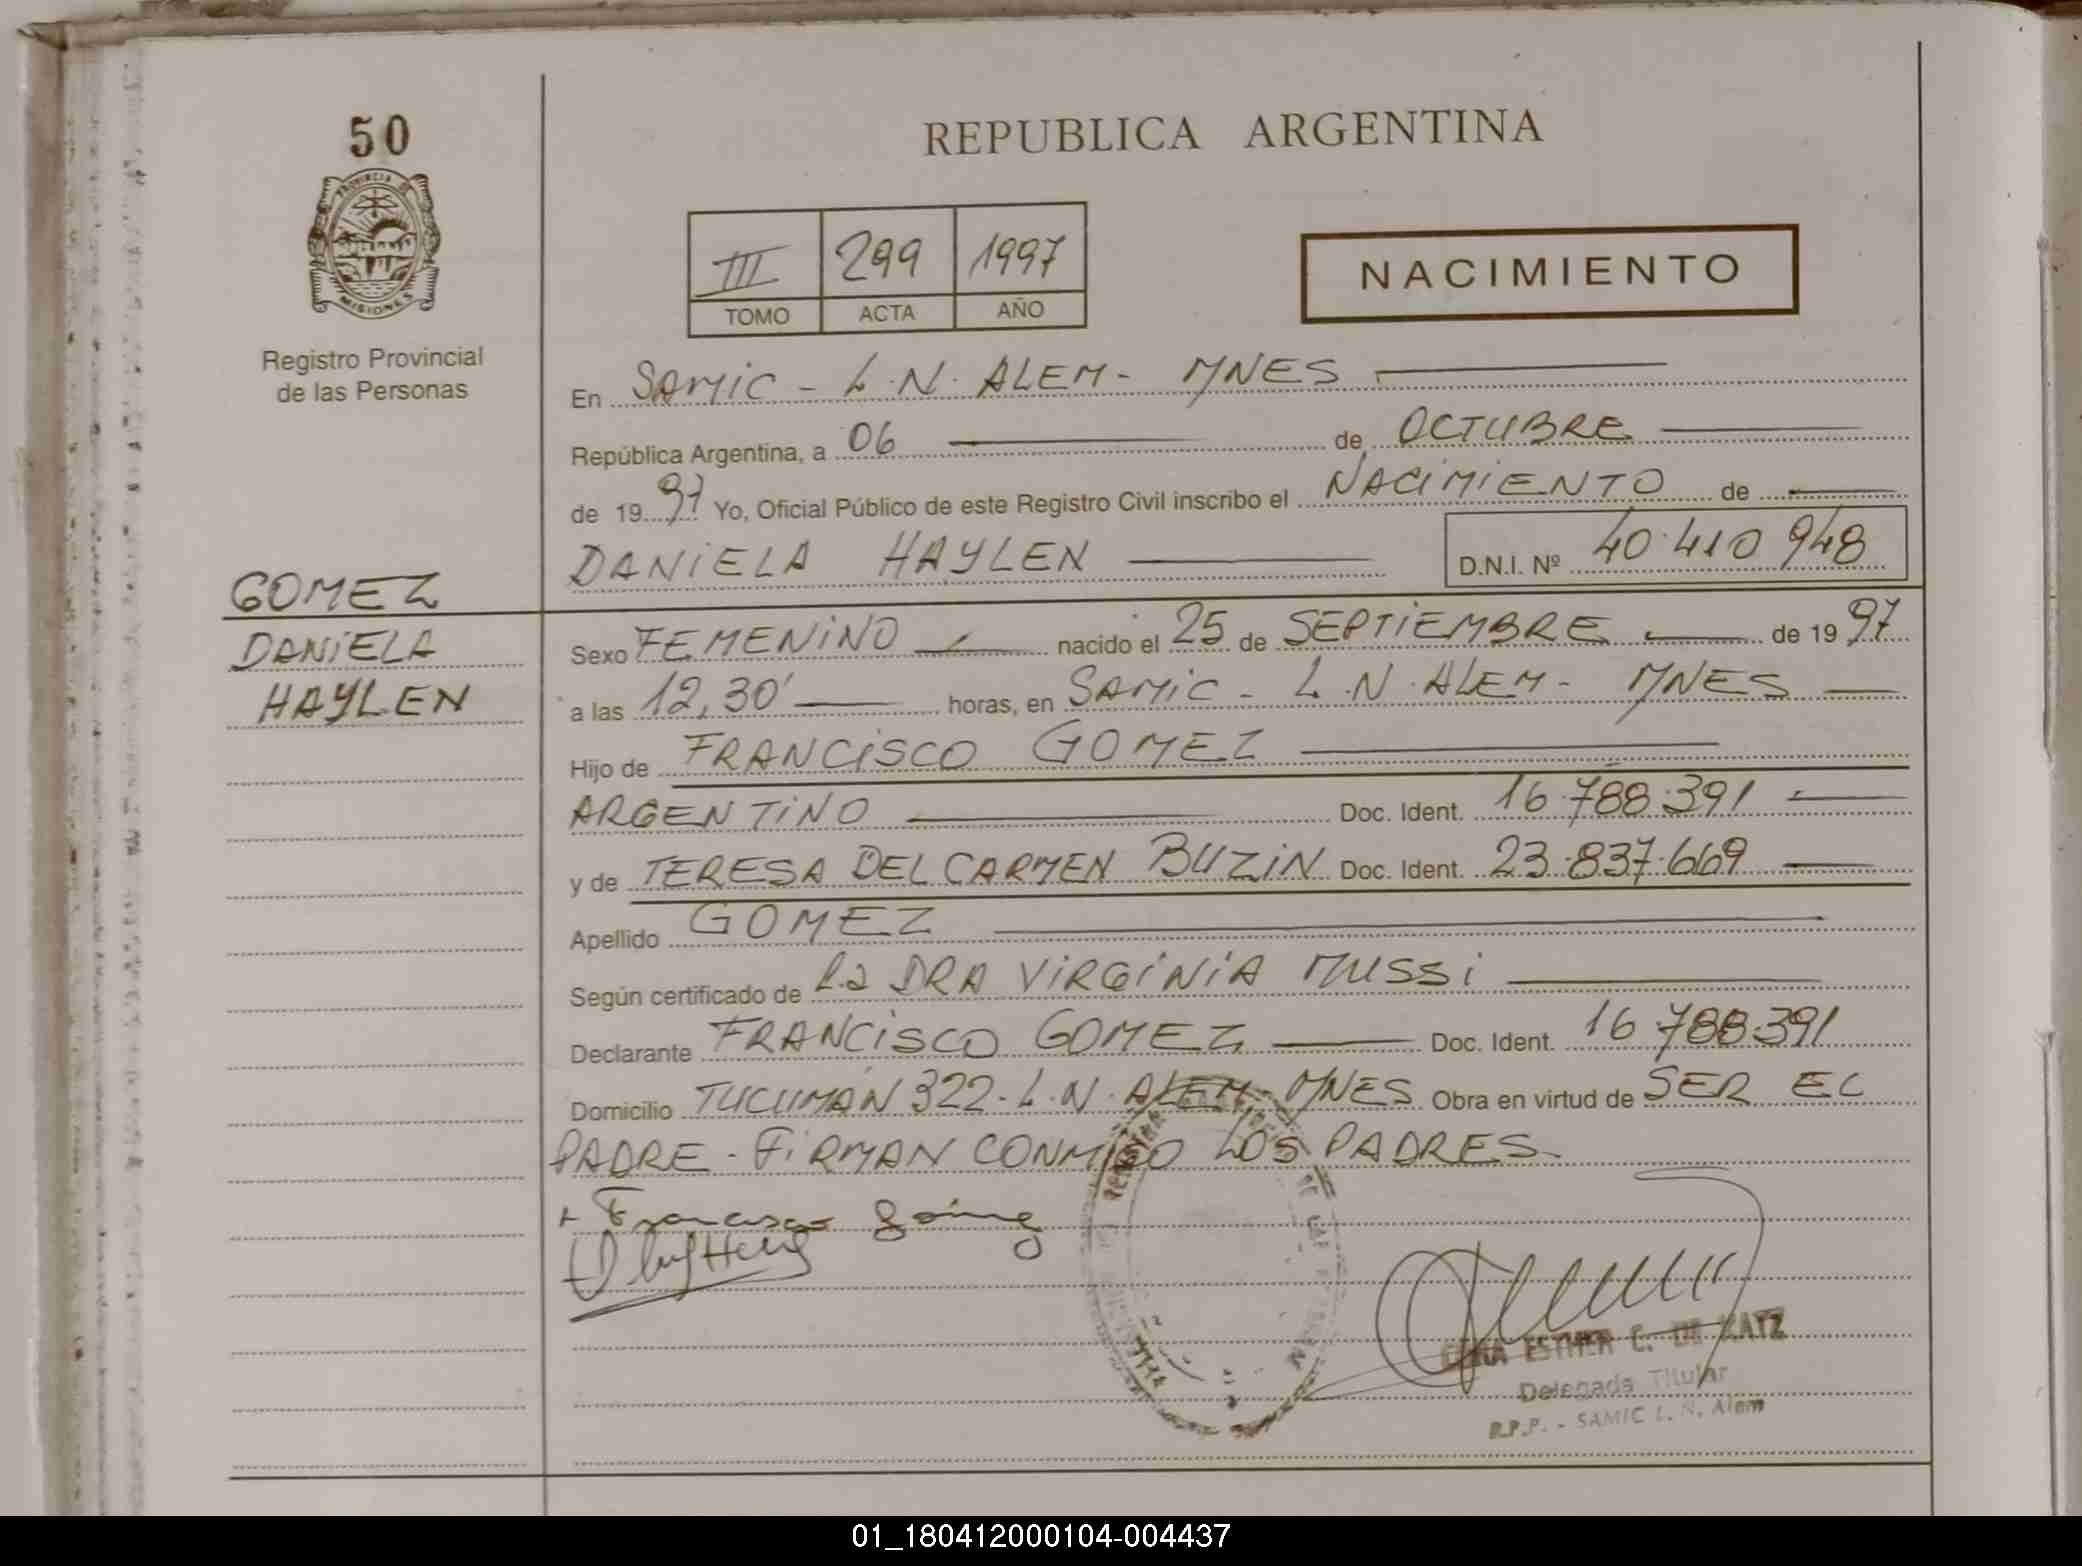 50
PROVINCIA DE
MISIONES
Registro Provincial
de las Personas
REPUBLICA ARGENTINA
III 299 1997
TOMO ACTA AÑO
NACIMIENTO
En SAMIC - L.N. ALEM - MNES
República Argentina, a 06 de OCTUBRE
de 1997 Yo, Oficial Público de este Registro Civil inscribo el NACIMIENTO de
DANIELA HAYLEN D.N.I. Nº 40.410 948
GOMEZ
DANIELA
HAYLEN
Sexo FEMENINO nacido el 25 de SEPTIEMBRE de 1997
a las 12,30' horas, en SAMIC - L.N. ALEM - MNES
Hijo de FRANCISCO GOMEZ
ARGENTINO Doc. Ident. 16.788.391
y de TERESA DEL CARMEN BUZIN Doc. Ident. 23.837.669
Apellido GOMEZ
Según certificado de La DRA VIRGINIA MUSSI
Declarante FRANCISCO GOMEZ Doc. Ident. 16.788.391
Domicilio TUCUMÁN 322 - L.N. ALEM - MNES Obra en virtud de SER EL
PADRE - FIRMAN CONMIGO LOS PADRES -
Francisco
ESTHER C. DE KATZ
Delegada Titular
R.P.P. - SAMIC L. N. Alem
01_180412000104-004437